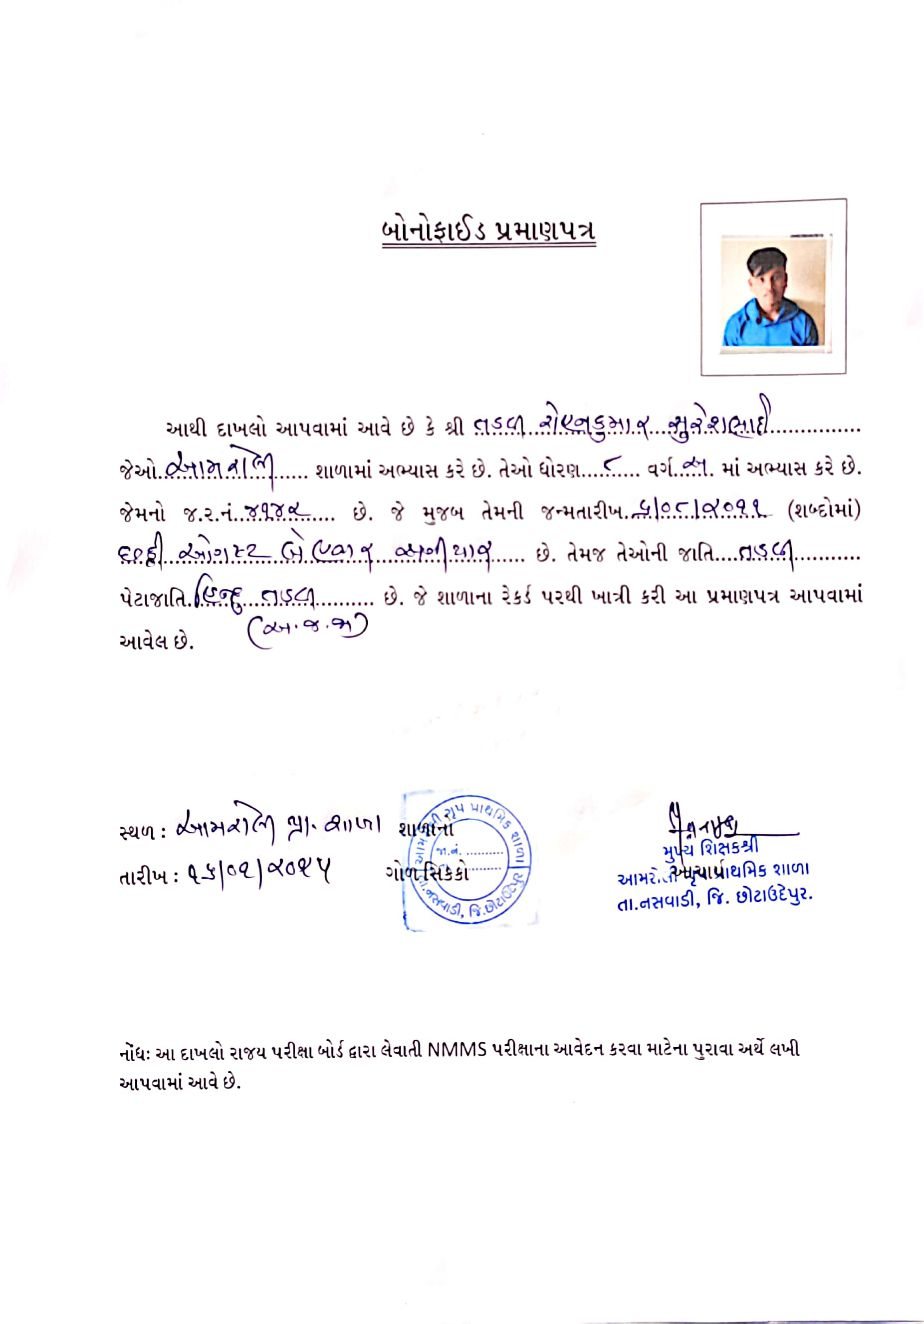 બોનોફાઈડ પ્રમાણપત્ર
આથી દાખલો આપવામાં આવે છે કે શ્રી તડવી રોહનકુમાર સુરેશભાઈ
જેઓ આમરોલી શાળામાં અભ્યાસ કરે છે. તેઓ ધોરણ ૮ વર્ગ અ માં અભ્યાસ કરે છે.
જેમનો જ.ર.નં. ૪૧૪૨ છે. જે મુજબ તેમની જન્મતારીખ ૬/૦૮/૨૦૧૧ (શબ્દોમાં)
છઠ્ઠી ઓગસ્ટ બે હજાર અગીયાર છે. તેમજ તેઓની જાતિ તડવી
પેટાજાતિ હિન્દુ તડવી છે. જે શાળાના રેકર્ડ પરથી ખાત્રી કરી આ પ્રમાણપત્ર આપવામાં
(અ.જ.જા)
આવેલ છે.
સ્થળ : આમરોલી પ્રા. શાળા શાળાનો
તારીખ : ૧૬/૦૧/૨૦૨૫ ગોળ સિક્કો
જા.નં.
તા.નસવાડી, જિ.છોટાઉદેપુર
મુખ્ય શિક્ષકશ્રી
આચાર્ય
આમરોલી પ્રાથમિક શાળા
તા.નસવાડી, જિ. છોટાઉદેપુર.
નોંધઃ આ દાખલો રાજય પરીક્ષા બોર્ડ દ્વારા લેવાતી NMMS પરીક્ષાના આવેદન કરવા માટેના પુરાવા અર્થે લખી
આપવામાં આવે છે.